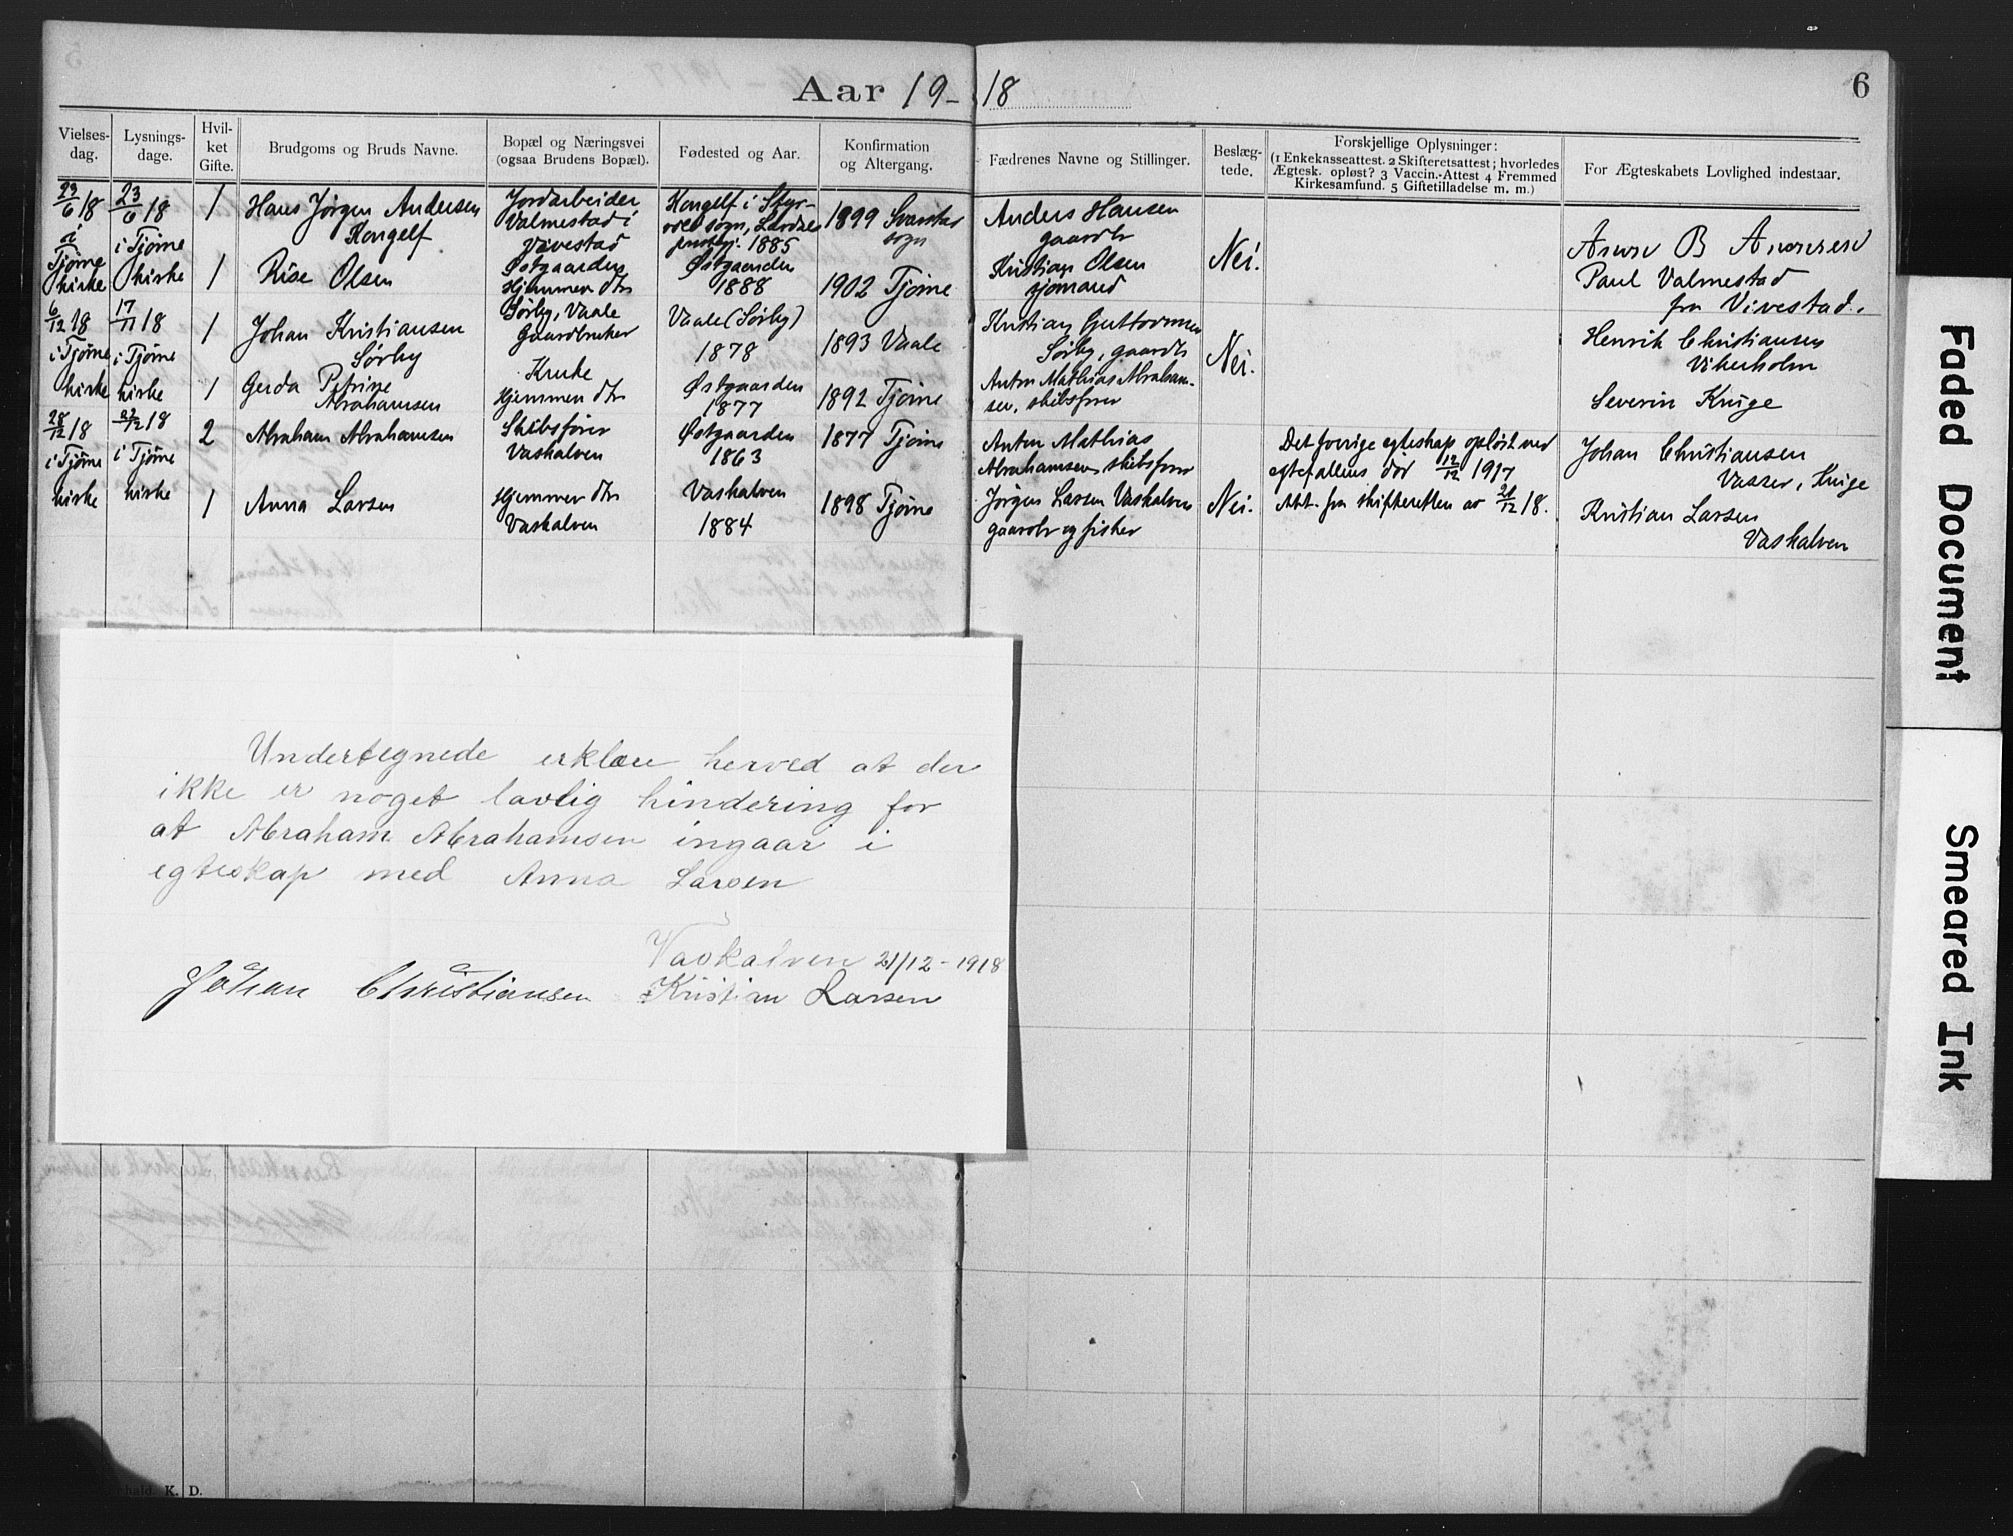 Aar 19-18
6
Vielses-dag.
Lysnings-dage.
Hvil-ket Gifte.
Brudgoms og Bruds Navne.
Bopæl og Næringsvei (ogsaa Brudens Bopæl).
Fødested og Aar.
Konfirmation og Altergang.
Fædrenes Navne og Stillinger.
Beslæg-tede.
Forskjellige Oplysninger:
(1 Enkekasseattest. 2 Skifteretsattest; hvorledes
Ægtesk. opløst? 3 Vaccin.-Attest 4 Fremmed
Kirkesamfund. 5 Giftetilladelse m. m.)
For Ægteskabets Lovlighed indestaar.
23/6 18
i
Tjøme
kirke
23/6 18
i Tjøme
kirke
1
Hans Jørgen Andersen
Kongelf
Jordarbeider
Valmestad i
Vivestad
Kongelf i Styr-
1885
1899 Svarstad
sogn
Anders Hansen
gaardbr
Nei.
Paul Valmestad
fra Vivestad.
1
Rise Olsen
Østgaarden
Hjemmev. dtr
Østgaarden
1888
1902 Tjøme
Kristian Olsen
sjømand
6/12 18
i Tjøme
kirke
17/11 18
i Tjøme
kirke
1
Johan Kristiansen
Sørby
Sørby, Vaale
Gaardbruker
Vaale (Sørby)
1878
1893 Vaale
Kristian Guttormsen
Sørby, gaardbr
Nei.
Henrik Christiansen
Vibenholm
1
Gerda Petrine
Abrahamsen
Kruke
Hjemmev dtr
Østgaarden
1877
1892 Tjøme
Anton Mathias Abraham-
sen, skibsfører
Severin Kruge
28/12 18
i Tjøme
kirke
22/12 18
i Tjøme
kirke
2
Abraham Abrahamsen
Skibsfører
Vaskalven
Østgaarden
1863
1877 Tjøme
Anton Mathias
Abrahamsen skibsfører
Det forrige egteskap opløst ved
egtefællens død 12/12 1917
Johan Christiansen
1
Anna Larsen
Hjemmev dtr
Vaskalven
Vaskalven
1884
1898 Tjøme
Jørgen Larsen Vaskalven
gaardbr og fisker
Nei.
Att. fra skifteretten av 21/12 18.
Kristian Larsen
Vaskalven
Undertegnede erklære herved at der
ikke er noget lavlig hindering for
at Abraham Abrahamsen ingaar i
egteskap med Anna Larsen
Vaskalven 21/12-1918
Johan Christiansen Kristian Larsen
K. D.
Faded Document
Smeared Ink